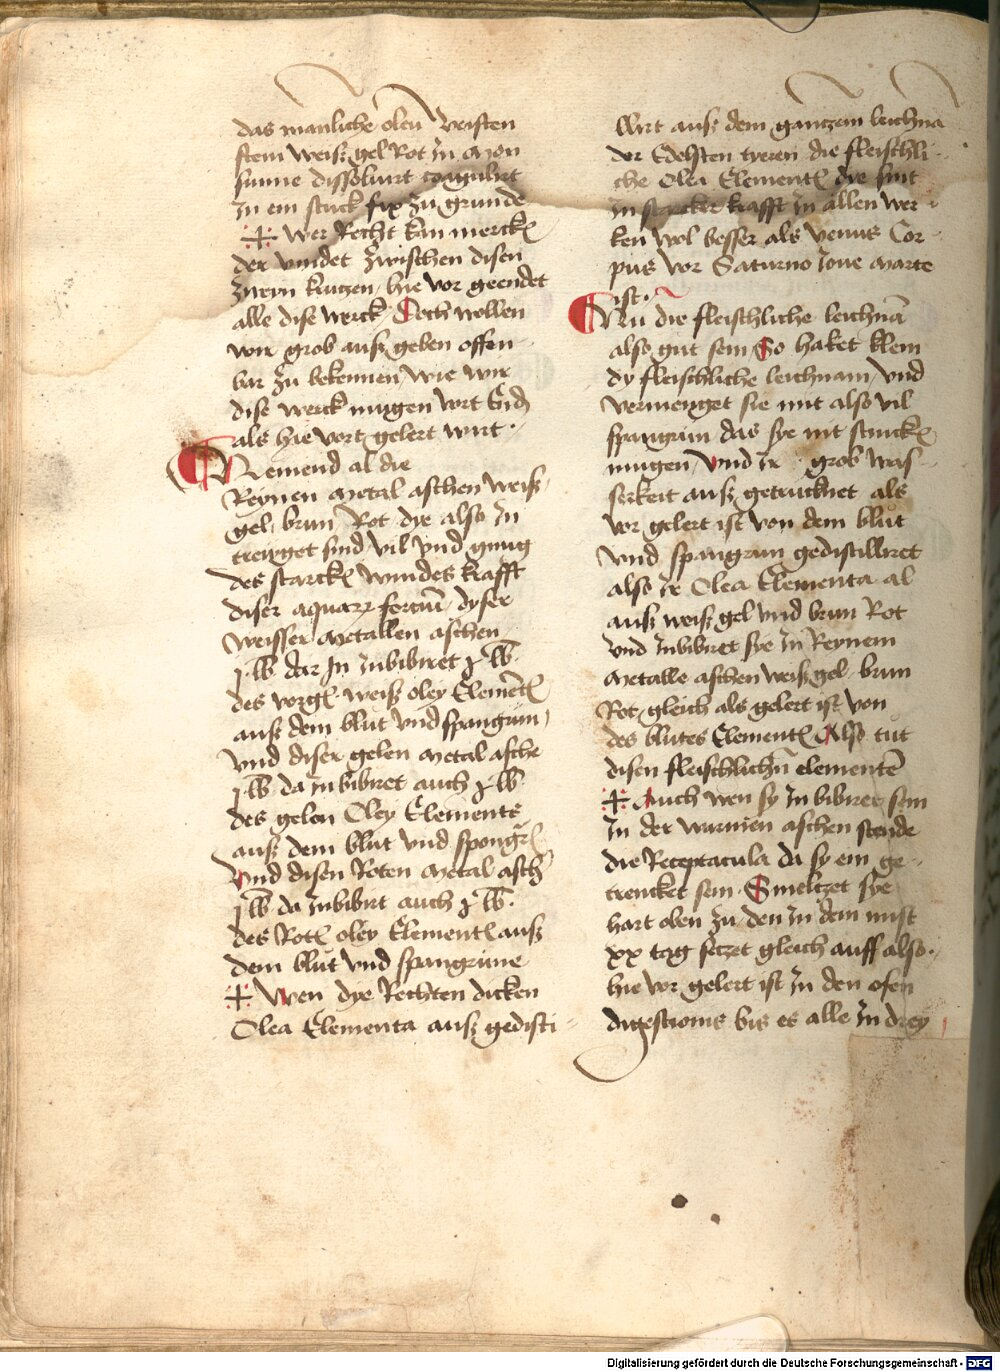 das manliche oleu vristen
stein weiß gel Rot in mon
sunne dissoluirt coagulirt
in ein stuck fix zu grunde
wer Recht kan mercken
der vindet zwischen disen
zweyn kurtzen hie vor geendet
alle dise werck Doch wollen
wir grob auß geben offen
bar zu bekennen wie wir
dise werck mugen vort
als hie vort gelert wirt
Nemend al die
Reynen metal aschen weiß
gel brun Rot dye also in
treinget sind vil vnd gnug
des starcken windes krafft
diser aquarum fortium dyser
weisser metallen aschen
dar in inbibiret
des vorgen weiß oley Elementen
auß dem blut vnd spangrun
vnd diser gelen metal asche
da inbibiret auch
des gelen Oley Elements
auß dem blut vnd
vnd disen Roten metal asch
da inbibirt auch
des Roten oley Elementen auß
dem blut vnd spangrune
wen dye Rechten dicken
Olea Elementa auß gedisti
wirt auß dem gantzem leichna
der Edelsten tyeren die fleischli
che Olea Elementen die sint
in starcker krafft in allen wer
ken wol besser als venus Cor
pus vor Saturno Ioue marte
ist.
Nu die fleischliche leichna
also gut sein So haket klein
dy fleischliche leichnam vnd
vermenget sie mit also vil
spangrun das sye nit stincken
mugen vnd ir grob was
serkeit auß getrucknet als
vor gelert ist von dem blut
vnd spangrun gedistilliret
also ir Olea Elementa al
auß weiß gel vnd brun Rot
vnd inbibiret sye in Reynem
metalle aschen weiß gel brun
Rot gleich als gelert ist von
des blutes Elementen Also tut
disen fleischlichen elementen
Auch wen sy inbibiret sein
in der warmen aschen stende
die Receptacula da sy ein ge
trencket sein Smeltzet sye
hart oben zu den in dem mist
xx tag setzet gleich auff also
hie vor gelert ist in den ofen
digestionis bis es alle in drey
Digitalisierung gefördert durch die Deutsche Forschungsgemeinschaft - DFG